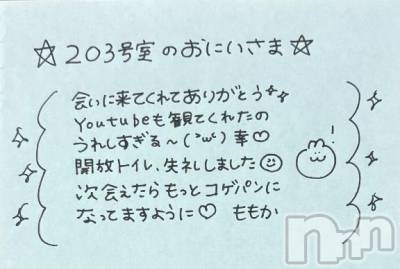 ☆203号室のおにいさま☆
会いに来てくれてありがとう
Youtubeも観てくれたの
うれしすぎる〜(˙꒳˙)幸♡
開放トイレ、失礼しました☺
次会えたらもっとコゲパンに
なってますように♡ ももか
!
nn